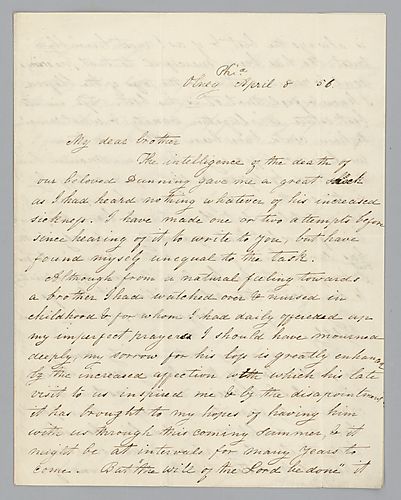 Phi.a
Olney April 8 56.
My dear brother
The intelligence of the death of
our beloved Dunning gave me a great shock
as I had heard nothing whatever of his increased
sickness. I have made one or two attempts before
since hearing of it, to write to you, but have
found myself unequal to the task.
Although from a natural feeling towards
a brother I had watched over & nursed in
childhood & for whom I had daily offereded up
my imperfect prayers I should have mourned
deeply, my sorrow for his loss is greatly enhanced
by the increased affection with which his late
visit to us inspired me & by the disapointment
it has brought to my hopes of having him
with us through this coming summer, & it
might be at intervals for many years to
come. But "the will of the Lord be done" it